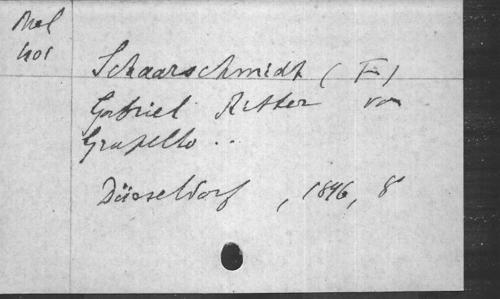 Mel
401
Schaarschmidt (F)
Gabriel Ritter von
Grupello ..
Düsseldorf , 1896, 8°